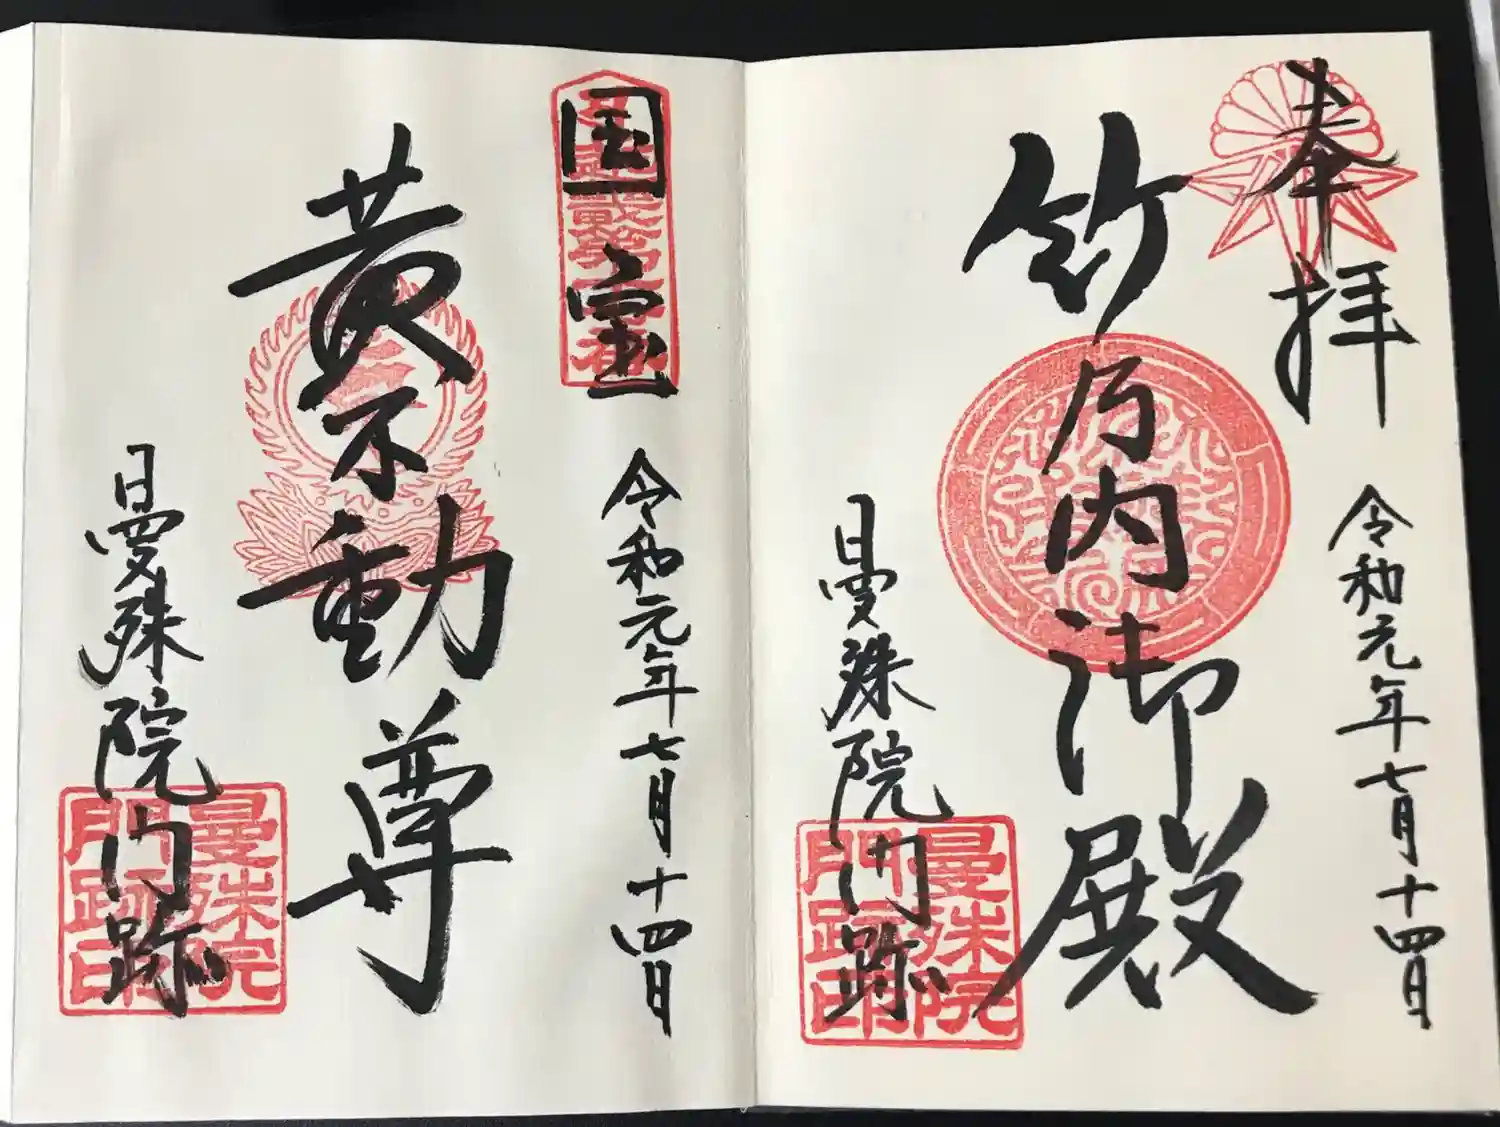 奉拝
令和元年七月十四日
竹乃内御殿
曼殊院門跡
曼殊院
門跡印
国宝
令和元年七月十四日
黄不動尊
曼殊院門跡
曼殊院
門跡印